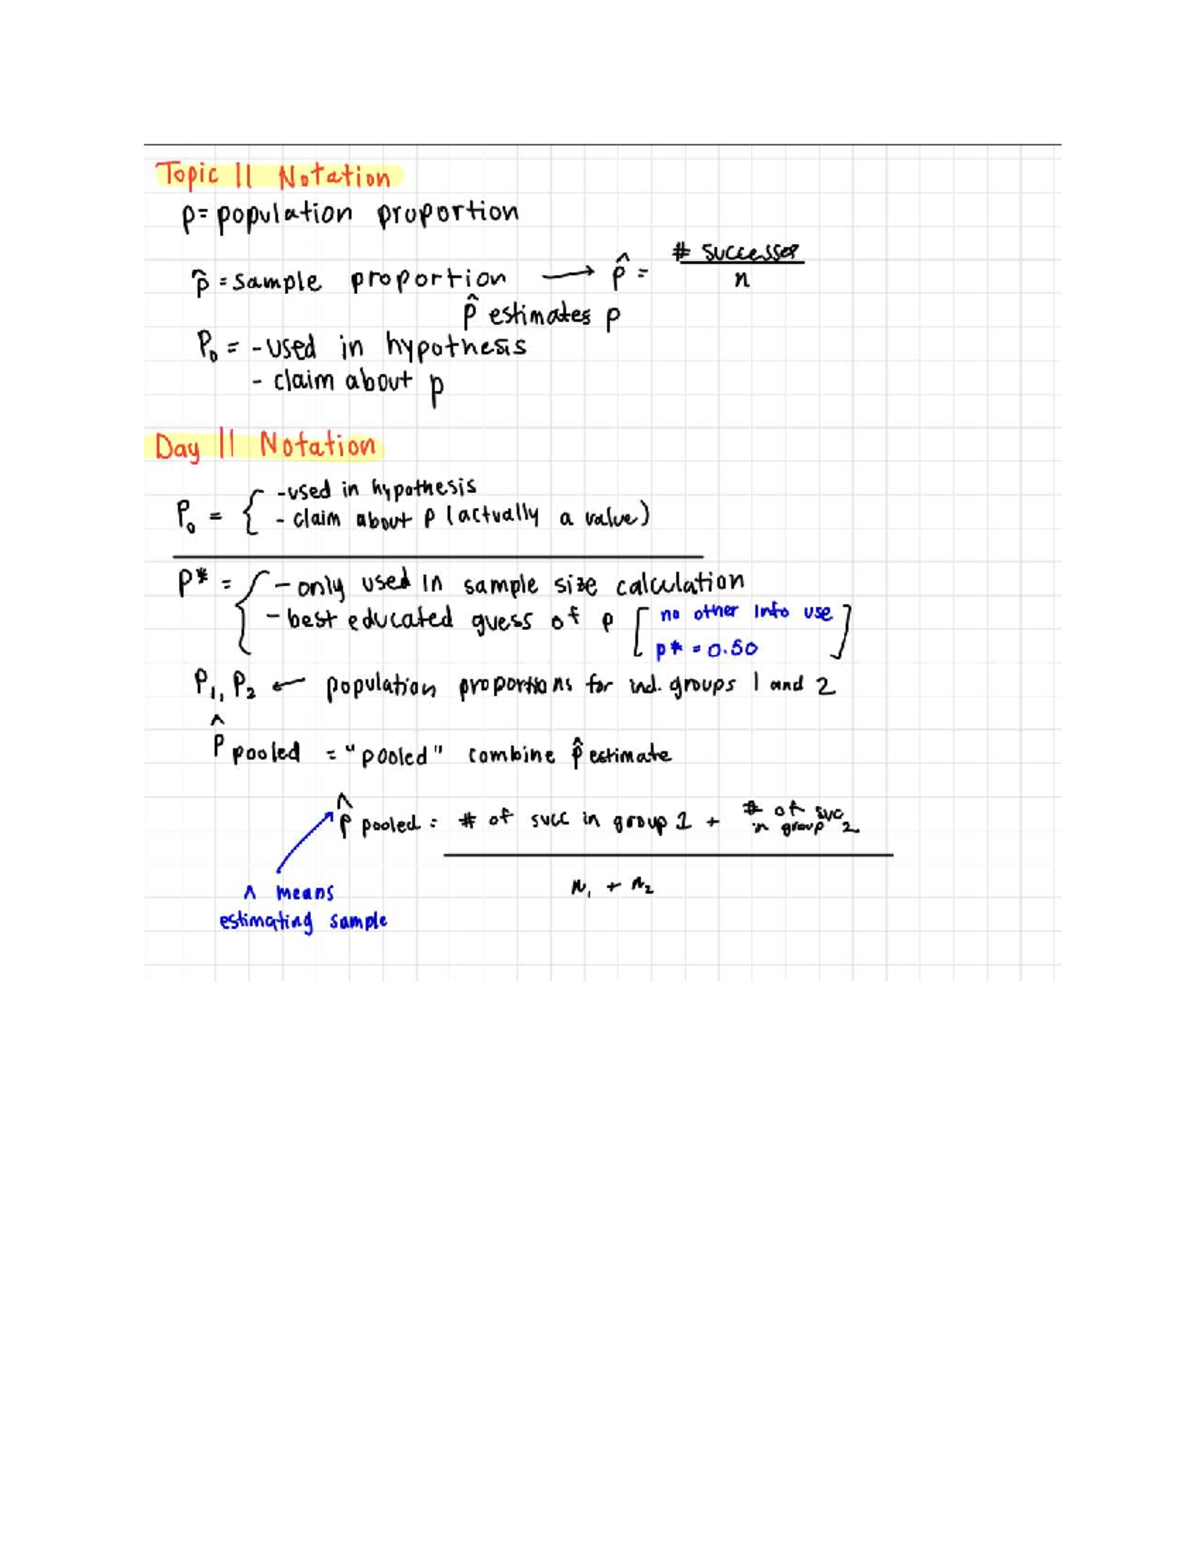 Topic 11 Notation
p = population proportion
p̂ = sample proportion → p̂ = # successes / n
p̂ estimates p
P₀ = - used in hypothesis
- claim about p
Day 11 Notation
P₀ = { - used in hypothesis
- claim about p (actually a value)
P* = { - only used in sample size calculation
- best educated guess of p [ no other info use
p* = 0.50 ]
P₁, P₂ ← population proportions for ind. groups 1 and 2
p̂ pooled = "pooled" combine p̂ estimate
p̂ pooled = # of succ in group 1 + # of suc in group 2
n₁ + n₂
^ means
estimating sample